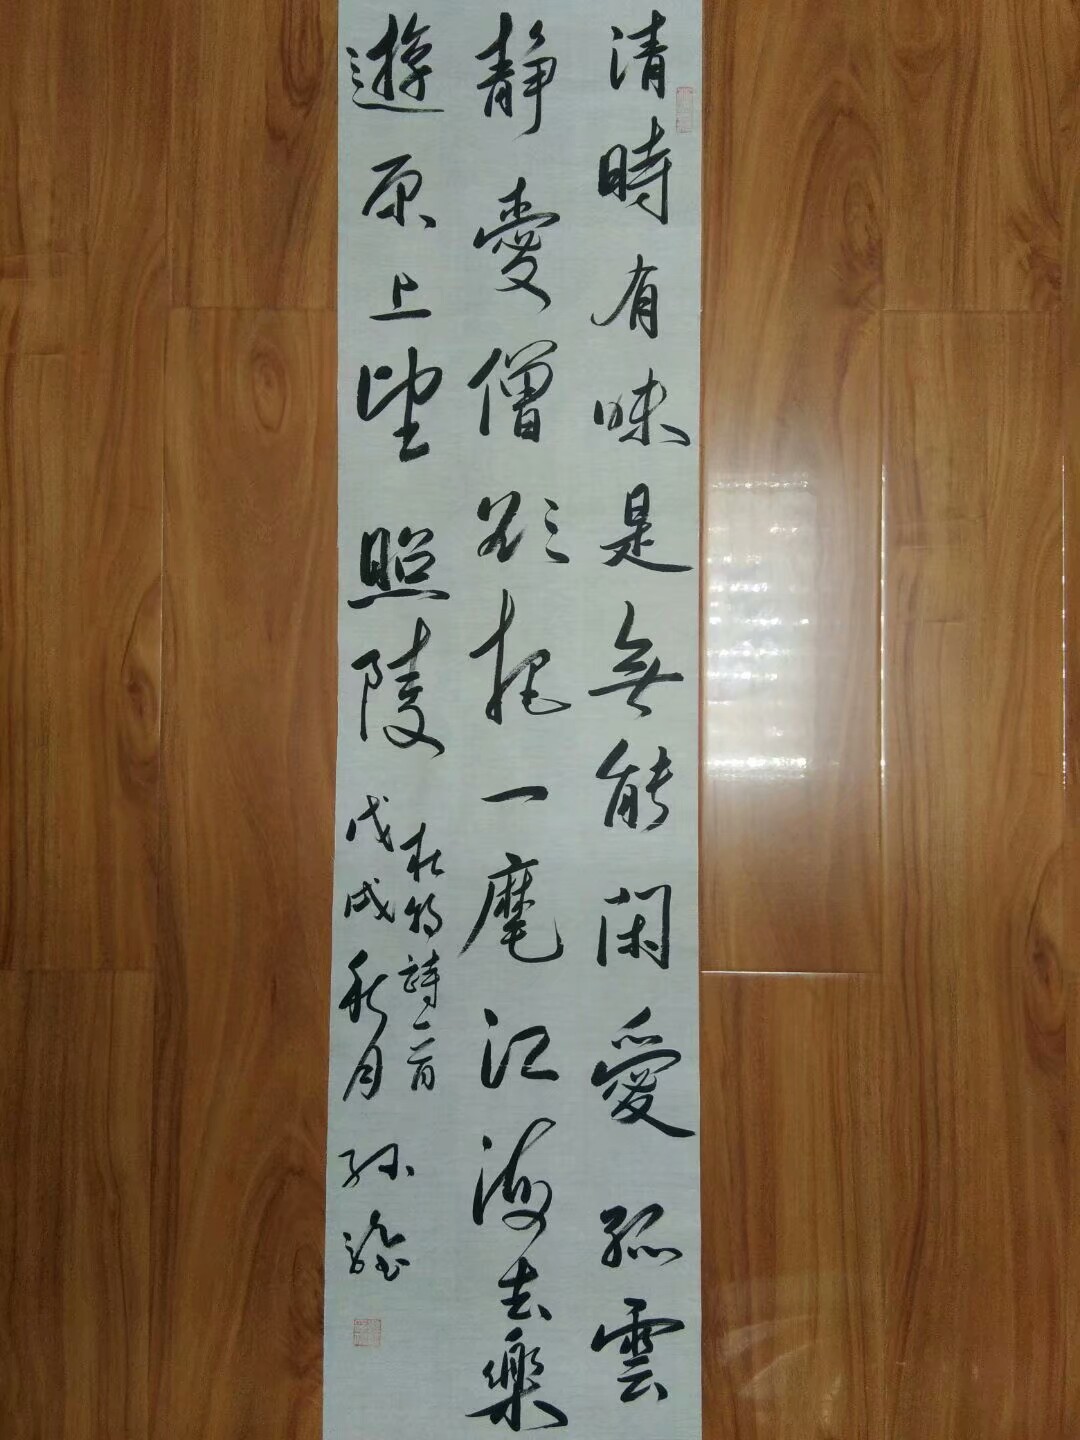 清時有味是無能閑愛孤雲
静愛僧欲把一麾江海去樂
遊原上望照陵
杜牧詩一首
戊戌秋月 孫